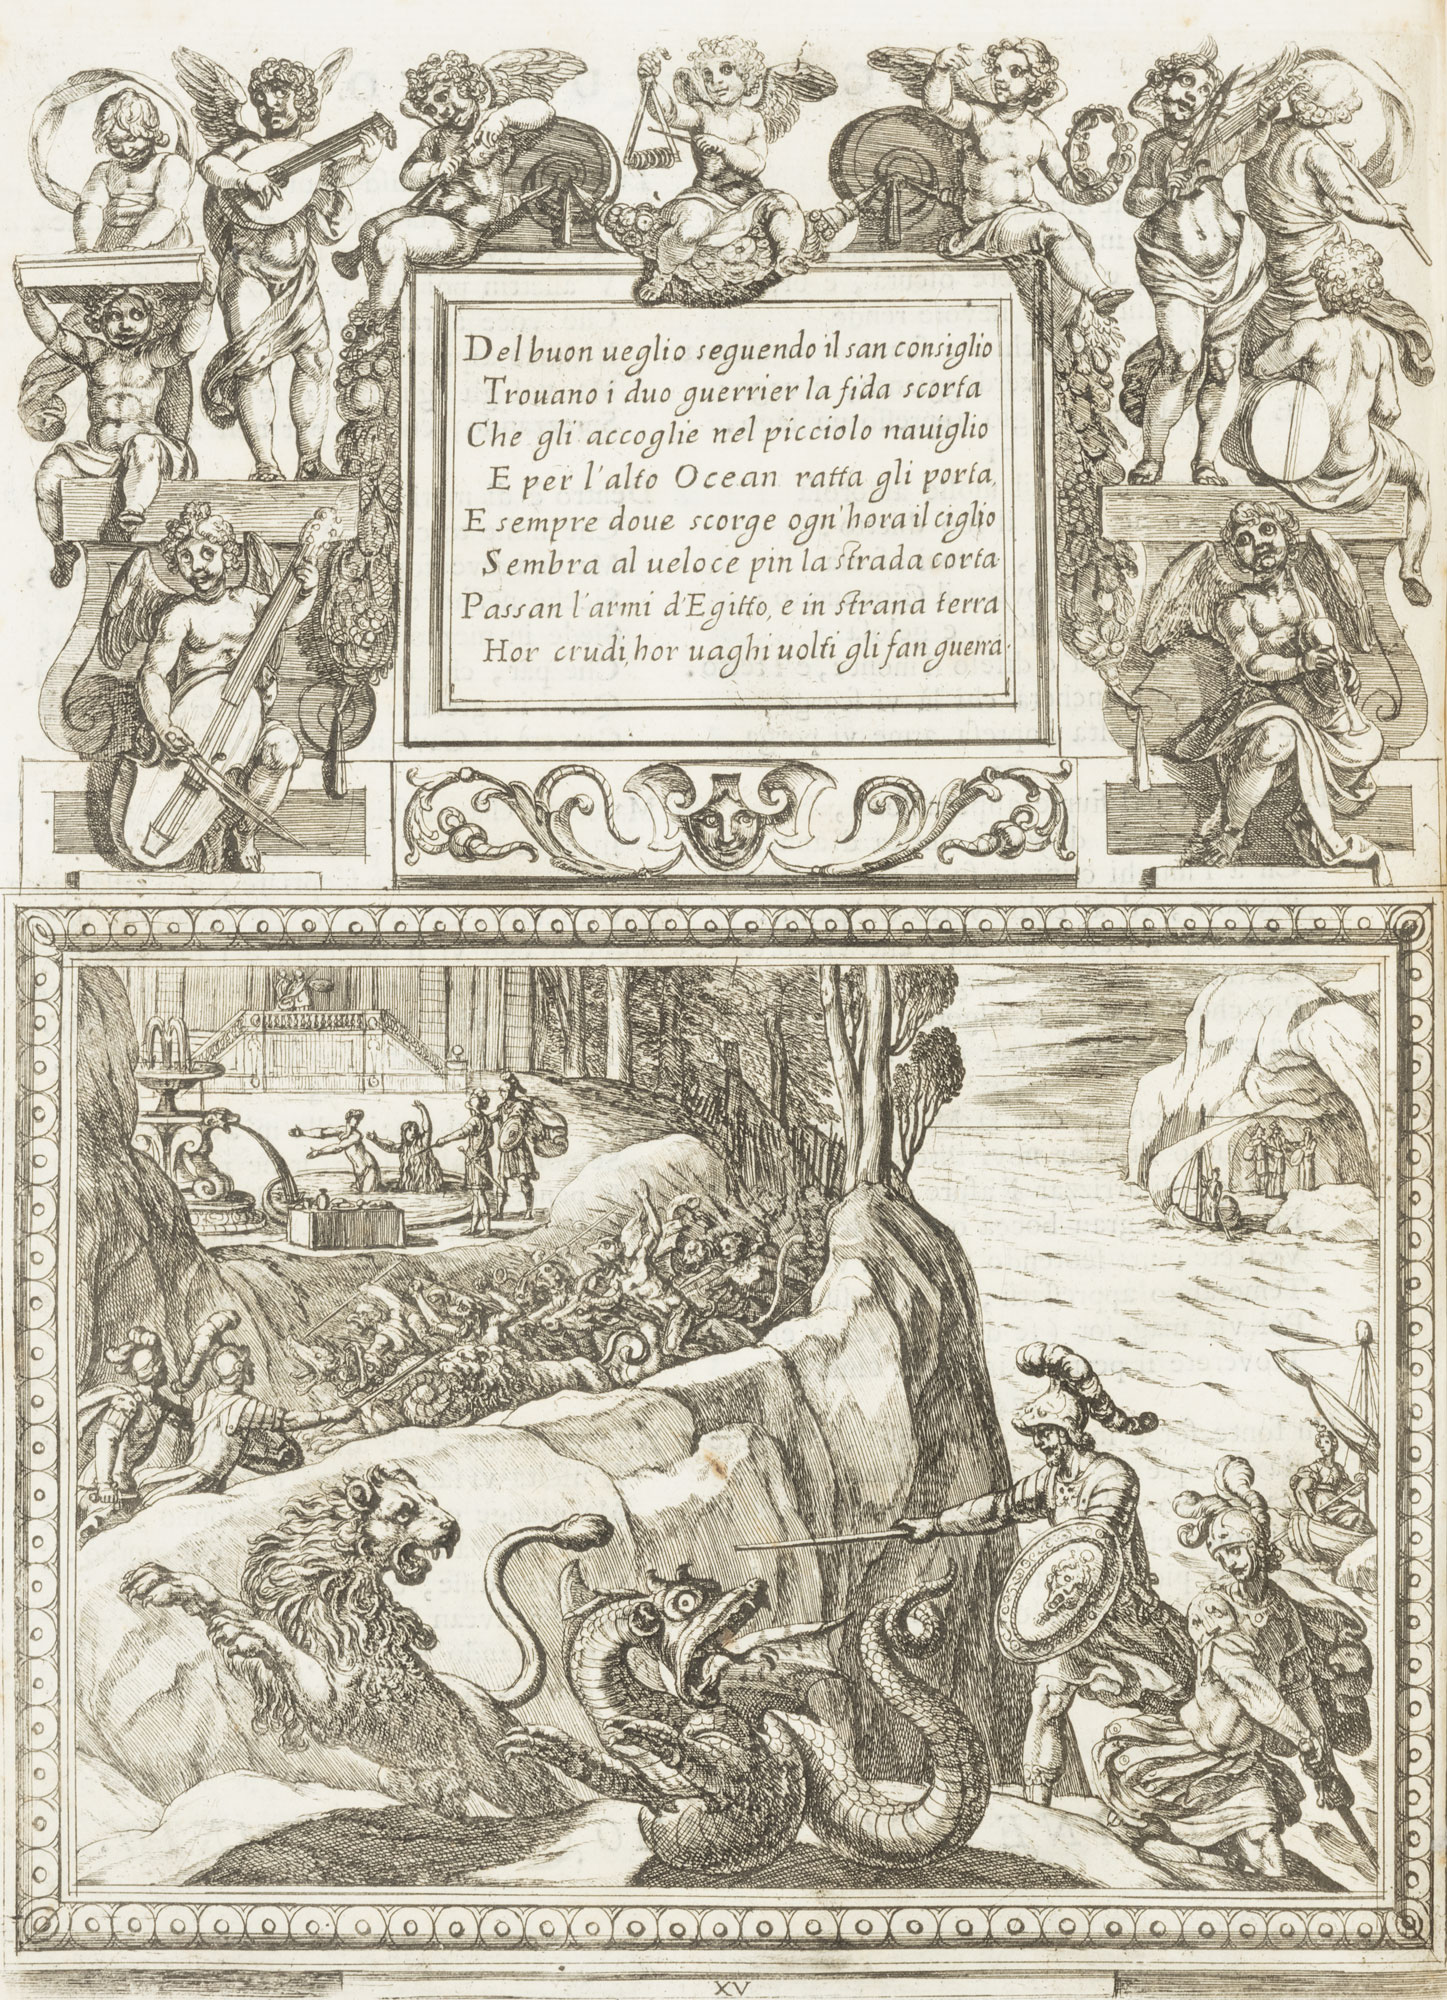 Del buon ueglio seguendo il san consiglio
Trouano i duo guerrier la fida scorta
Che gli accoglie nel picciolo nauiglio
E per l'alto Ocean ratta gli porta,
E sempre doue scorge ogn'hora il ciglio
Sembra al ueloce pin la strada corta
Passan l'armi d'Egitto, e in strana terra
Hor crudi, hor uaghi uolti gli fan guerra.
XV